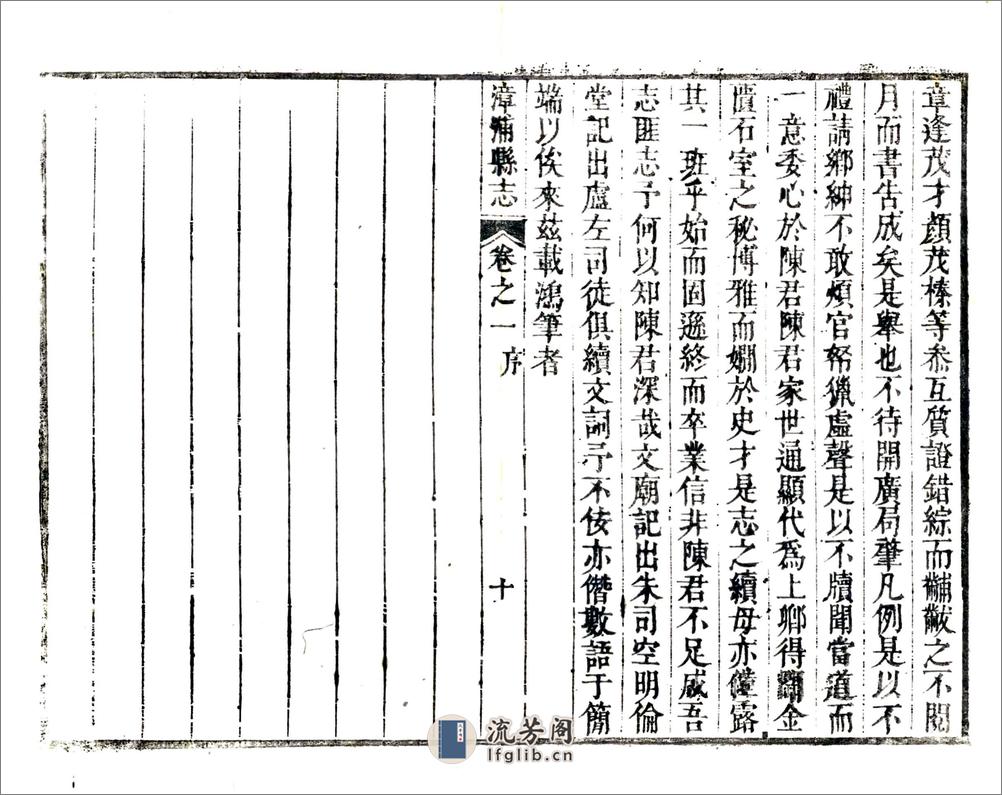 章逢茂才顏茂榛等參互質證錯綜而黼黻之不閱
月而書告成矣是舉也不待開廣局肇凡例是以不
禮請鄉紳不敢煩官帑獵虛聲是以不牘聞當道而
一意委心於陳君陳君家世通顯代為上卿得金
匱石室之秘博雅而嫺於史才是志之續毋亦僅露
其一班乎始而固遜終而卒業信非陳君不足成吾
志匪志予何以知陳君深哉文廟記出朱司空明倫
堂記出盧左司徒俱續文詞予不佞亦僭數語于簡
端以俟來茲載鴻筆者
漳浦縣志 卷之一 序 十
流芳阁
lfglib.cn